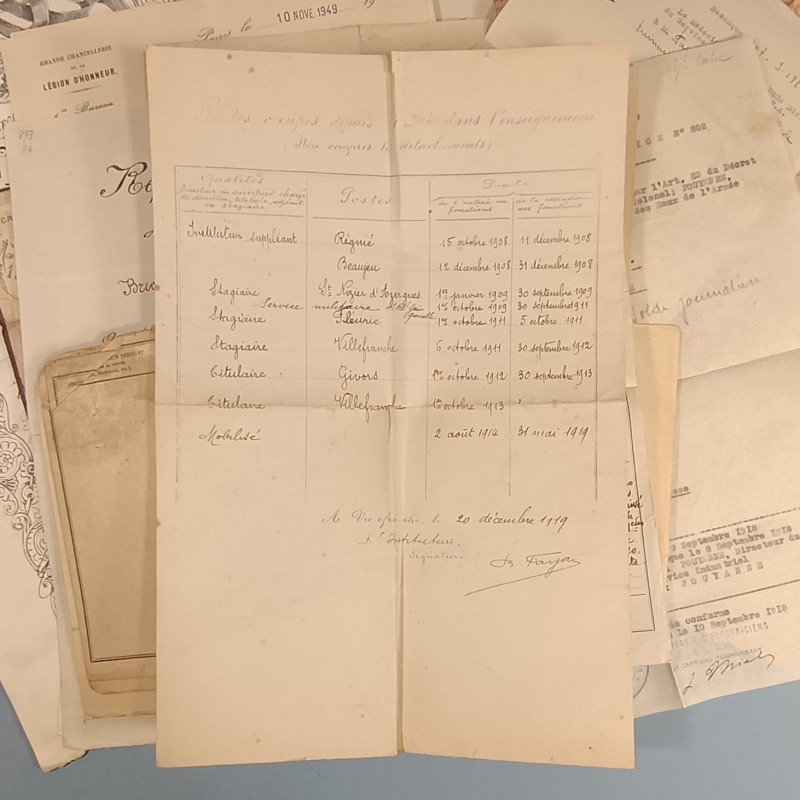 10 NOVE 1949
GRANDE CHANCELLERIE
DE LA
LÉGION D'HONNEUR.
Bureau
Postes occupés depuis dans l'enseignement
(Non compris les détachements)
Qualités Postes Date
Directeur ou directrice, chargé de l'entrée en de la cessation
de direction, titulaire, adjoint fonctions des fonctions
ou Stagiaire
Instituteur suppléant Régnié 15 octobre 1908 11 décembre 1908
Beaujeu 12 décembre 1908 31 décembre 1908
Stagiaire St Nizier d'Azergues 1er janvier 1909 30 septembre 1909
Service militaire 1er octobre 1909 30 septembre 1911
Stagiaire Fleurie 1er octobre 1911 5 octobre 1911
Stagiaire Villefranche 6 octobre 1911 30 septembre 1912
Titulaire Givors 1er octobre 1912 30 septembre 1913
Titulaire Villefranche 1er octobre 1913 "
Mobilisé 2 août 1914 31 mai 1919
A Villefranche, le 20 décembre 1919
L'Instituteur,
Signature
ICE N° 802
par l'Art. 23 du Décret
olonel; POUYANNE,
des Eaux de l'Armée
solde journalien
9 Septembre 1918
que le 8 Septembre 1918
POUYANNE, Directeur du
vice Industriel
POUYANNE
conforme
le 10 Septembre 1918